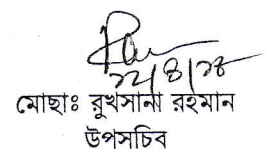 ২২/৪/২৪
মোছাঃ রুখসানা রহমান
উপসচিব